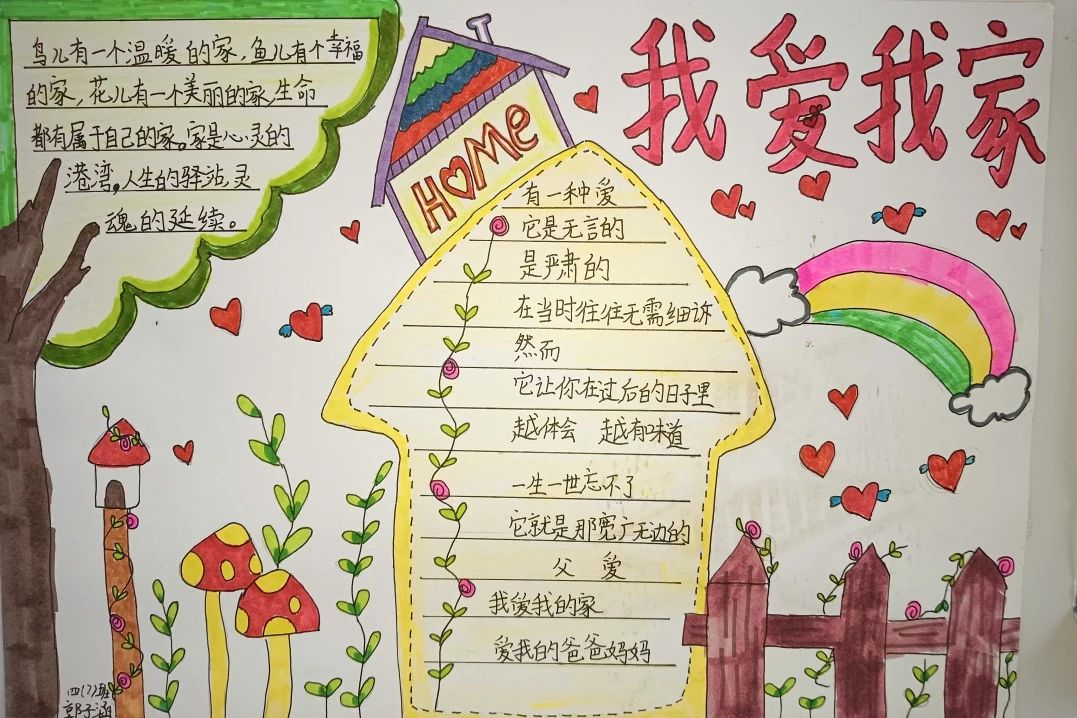 我爱我家
鸟儿有一个温暖的家，鱼儿有个幸福
的家，花儿有一个美丽的家，生命
都有属于自己的家。家是心灵的
港湾，人生的驿站，灵
魂的延续。
HOMe
有一种爱
它是无言的
是严肃的
在当时往往无需细诉
然而
它让你在过后的日子里
越体会 越有味道
一生一世忘不了
它就是那宽广无边的
父 爱
我爱我的家
爱我的爸爸妈妈
四(7)班
郭子涵